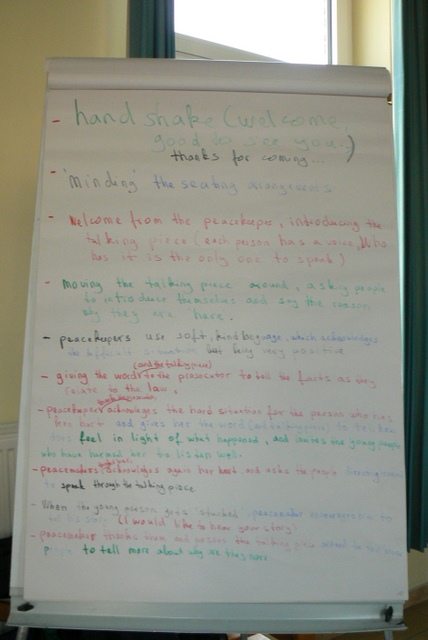 - hand shake (welcome,
good to see you...)
thanks for coming...
- 'minding' the seating arrangements
- Welcome from the peacekeeper, introducing the
talking piece (each person has a voice, Who
has it is the only one to speak)
- moving the talking piece around, asking people
to introduce themselves and say the reason
why they are here.
- peacekeepers use soft, kind language, which acknowledges
the difficult situation but being very positive
(and the talking piece)
- giving the words to the prosecutor to tell the facts as they
relate to the law.
- peacekeeper acknowledges the hard situation for the person who has
been hurt and gives her the word (and talking piece) to tell
feel in light of what happened, and invites the young people
who have harmed her to listen well.
- peacemakers acknowledges again her hurt and asks the people
to speak through the talking piece
- When the young person gets attacked peacemaker
(I would like to hear your story)
- peacemaker thanks them and passes the talking piece
to tell more about why are they